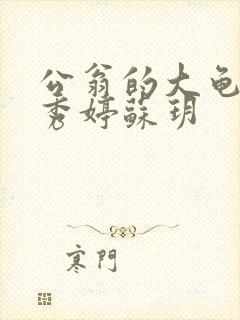 公翁的大龟
秀婷蘇玥
寒門